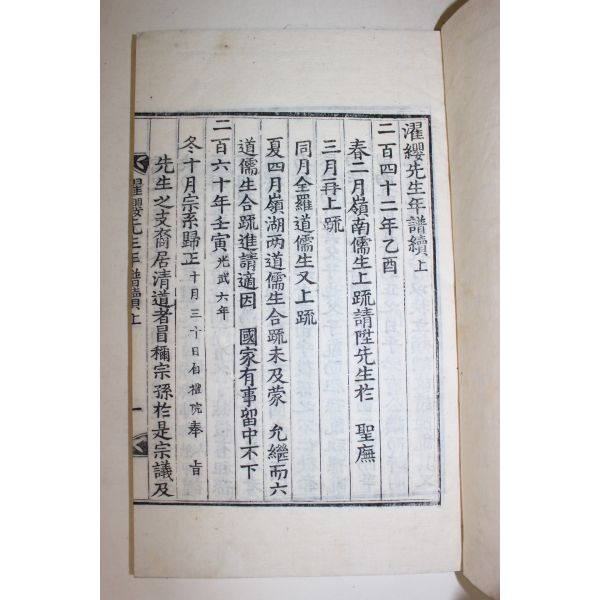 濯纓先生年譜續上
二百四十二年乙酉
春二月嶺南儒生上疏請陞先生於　聖廡
三月再上疏
同月全羅道儒生又上疏
夏四月嶺湖兩道儒生合疏未及蒙　允繼而六
道儒生合疏進請適因　國家有事留中不下
二百六十年壬寅光武六年
冬十月宗系歸正十月三十日自掌禮院奉　旨
先生之支裔居清道者冒稱宗孫於是宗議及
濯纓先生年譜續上　一